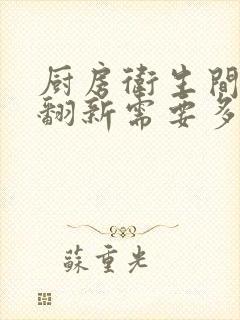 厨房衛生間
翻新需要多
蘇重光